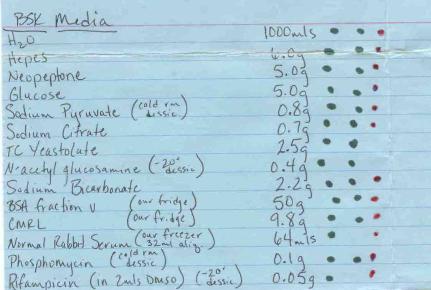 BSK Media
H2O 1000mls
Hepes 6.0g
Neopeptone 5.0g
Glucose 5.0g
Sodium Pyruvate (cold rm dessic.) 0.8g
Sodium Citrate 0.7g
TC Yeastolate 2.5g
N-acetyl glucosamine (-20° dessic) 0.4g
Sodium Bicarbonate 2.2g
BSA fraction V (our fridge) 50g
CMRL (our fridge) 9.8g
Normal Rabbit Serum (our freezer 32ml aliq.) 64mls
Phosphomycin (cold rm dessic) 0.1g
Rifampicin (in 2mls DMSO) (-20° dessic) 0.05g